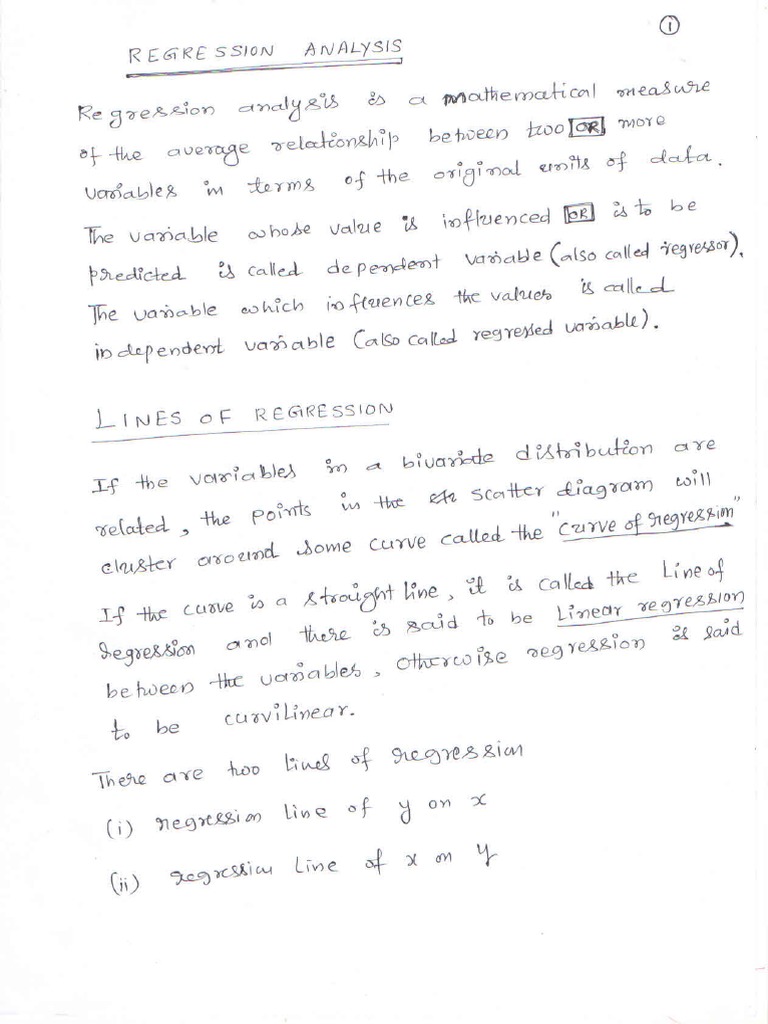 ①
REGRESSION ANALYSIS
Regression analysis is a mathematical measure
of the average relationship between two OR more
variables in terms of the original units of data.
The variable whose value is influenced OR is to be
predicted is called dependent variable (also called regressor).
The variable which influences the values is called
independent variable (also called regressed variable).
LINES OF REGRESSION
If the variables in a bivariate distribution are
related, the points in the scatter diagram will
cluster around some curve called the "curve of regression"
If the curve is a straight line, it is called the Line of
regression and there is said to be Linear regression
between the variables, otherwise regression is said
to be curvilinear.
There are two lines of regression
(i) regression line of y on x
(ii) regression line of x on y